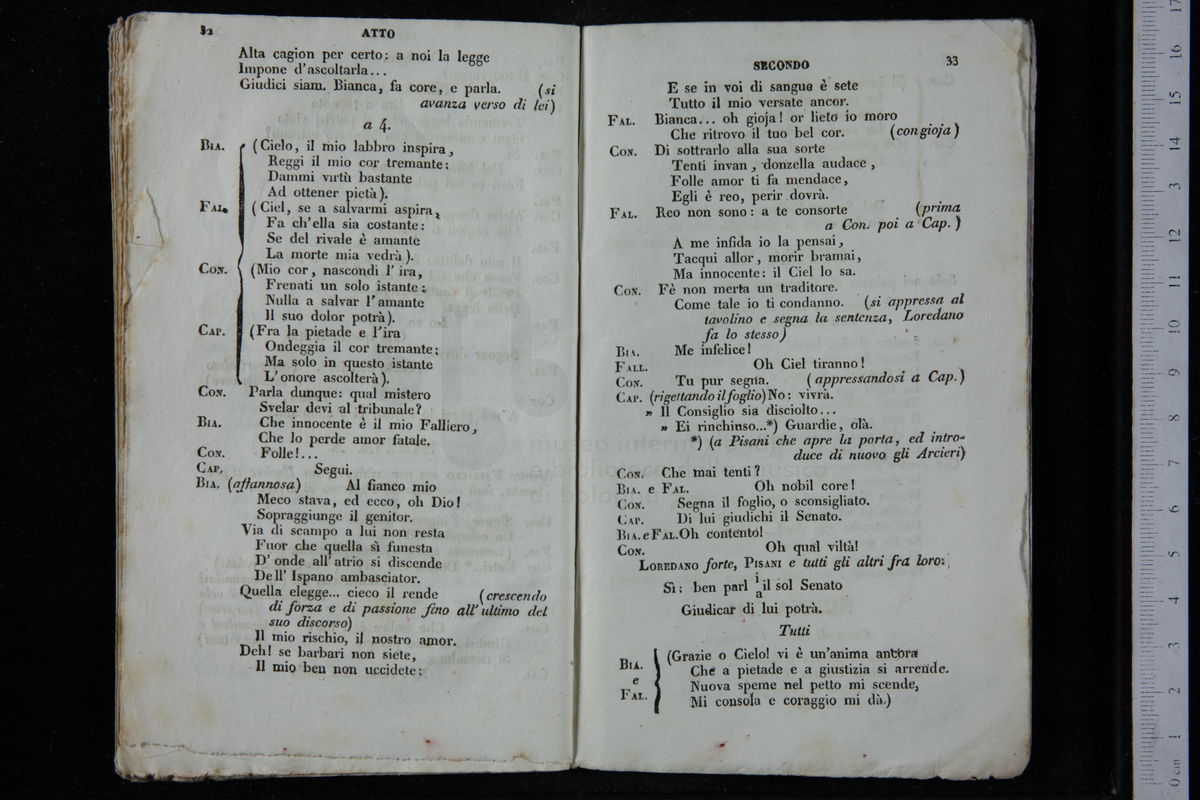 32 ATTO
Alta cagion per certo: a noi la legge
Impone d'ascoltarla...
Giudici siam. Bianca, fa core, e parla. (si
avanza verso di lei)
a 4.
BIA. (Cielo, il mio labbro inspira,
Reggi il mio cor tremante:
Dammi virtù bastante
Ad ottener pietà).
FAL. (Ciel, se a salvarmi aspira,
Fa ch'ella sia costante:
Se del rivale è amante
La morte mia vedrà).
CON. (Mio cor, nascondi l'ira,
Frenati un solo istante:
Nulla a salvar l'amante
Il suo dolor potrà).
CAP. (Fra la pietade e l'ira
Ondeggia il cor tremante:
Ma solo in questo istante
L'onore ascolterà).
CON. Parla dunque: qual mistero
Svelar devi al tribunale?
BIA. Che innocente è il mio Falliero,
Che lo perde amor fatale.
CON. Folle!...
CAP. Segui.
BIA. (affannosa) Al fianco mio
Meco stava, ed ecco, oh Dio!
Sopraggiunge il genitor.
Via di scampo a lui non resta
Fuor che quella sì funesta
D'onde all'atrio si discende
Dell'Ispano ambasciator.
Quella elegge... cieco il rende (crescendo
di forza e di passione fino all'ultimo del
suo discorso)
Il mio rischio, il nostro amor.
Deh! se barbari non siete,
Il mio ben non uccidete:
SECONDO 33
E se in voi di sangue è sete
Tutto il mio versate ancor.
FAL. Bianca... oh gioja! or lieto io moro
Che ritrovo il tuo bel cor. (con gioja)
CON. Di sottrarlo alla sua sorte
Tenti invan, donzella audace,
Folle amor ti fa mendace,
Egli è reo, perir dovrà.
FAL. Reo non sono: a te consorte (prima
a Con. poi a Cap.)
A me infida io la pensai,
Tacqui allor, morir bramai,
Ma innocente: il Ciel lo sa.
CON. Fè non merta un traditore.
Come tale io ti condanno. (si appressa al
tavolino e segna la sentenza, Loredano
fa lo stesso)
BIA. Me infelice!
FALL. Oh Ciel tiranno!
CON. Tu pur segna. (appressandosi a Cap.)
CAP. (rigettando il foglio) No: vivrà.
» Il Consiglio sia disciolto...
» Ei rinchiuso...*) Guardie, olà.
*) (a Pisani che apre la porta, ed intro-
duce di nuovo gli Arcieri)
CON. Che mai tenti?
BIA. e FAL. Oh nobil core!
CON. Segna il foglio, o sconsigliato.
CAP. Di lui giudichi il Senato.
BIA. e FAL. Oh contento!
CON. Oh qual viltà!
LOREDANO forte, PISANI e tutti gli altri fra loro:
Sì: ben parl i/a il sol Senato
Giudicar di lui potrà.
Tutti
BIA. e FAL. (Grazie o Cielo! vi è un'anima ancora
Che a pietade e a giustizia si arrende.
Nuova speme nel petto mi scende,
Mi consola e coraggio mi dà.)